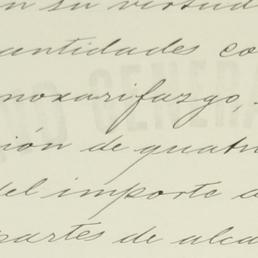 en su virtud
cantidades co
moxarifazgo,
ción de quatro
del importe d
partes de alca